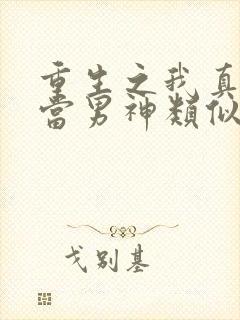 重生之我真
當男神類似
戈別基